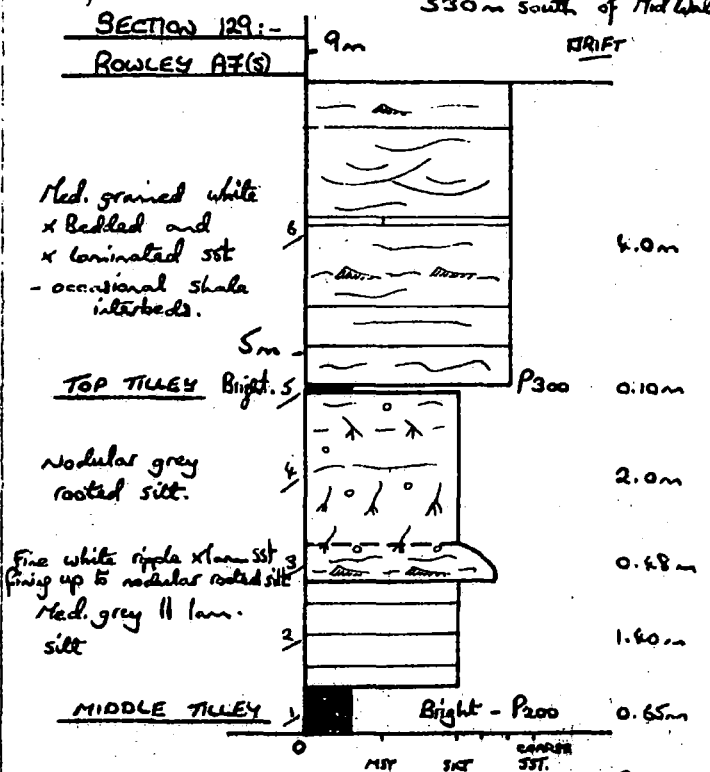 330m south of Mid
SECTION 129:-
9m
DRIFT
ROWLEY A7(S)
Med. grained white
x Bedded and
x laminated sst
- occasional shale
interbeds.
6
4.0m
5m
TOP TILLEY Bright. 5
P300
0.10m
Nodular grey
rooted silt.
4
2.0m
Fine white ripple xlam sst
fining up to nodular rooted silt
3
0.48m
Med. grey || lam.
silt
2
1.40m
MIDDLE TILLEY
1
Bright - P200
0.65m
0
MST
SLT
COARSE
SST.